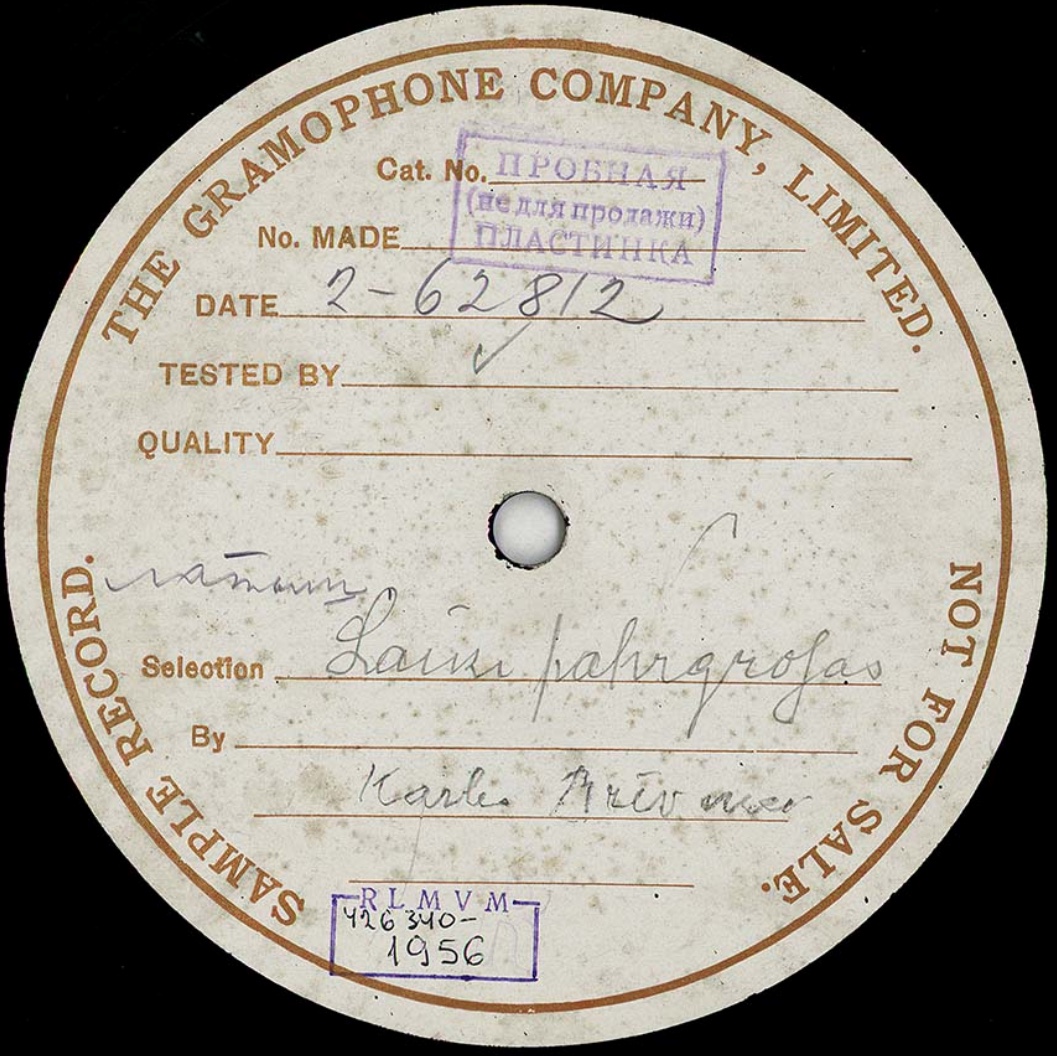 THE GRAMOPHONE COMPANY, LIMITED.
Cat. No.
ПРОБНАЯ
(не для продажи)
ПЛАСТИНКА
No. MADE
DATE 2-62812
TESTED BY
QUALITY
Selection Laiki pahrgrosas
By
Karlis
SAMPLE RECORD.
NOT FOR SALE.
RLMVM
426340-
1956